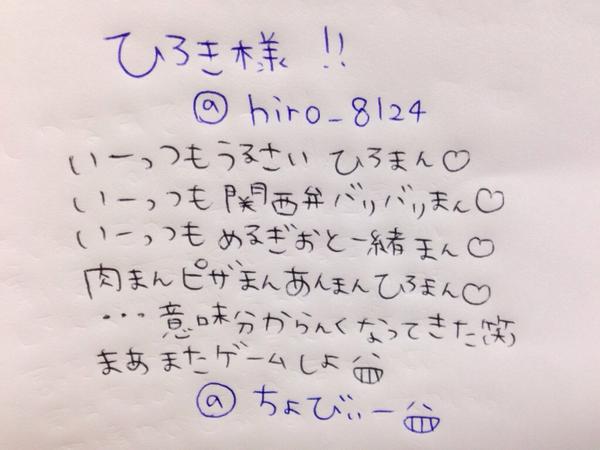 ひろき様 !!
@hiro_8124
いーっつもうるさい ひろまん♡
いーっつも関西弁バリバリまん♡
いーっつも めるぎおと一緒まん♡
肉まんピザまんあんまんひろまん♡
…意味分からんくなってきた(笑)
まあまたゲームしよ
@ちょびぃー